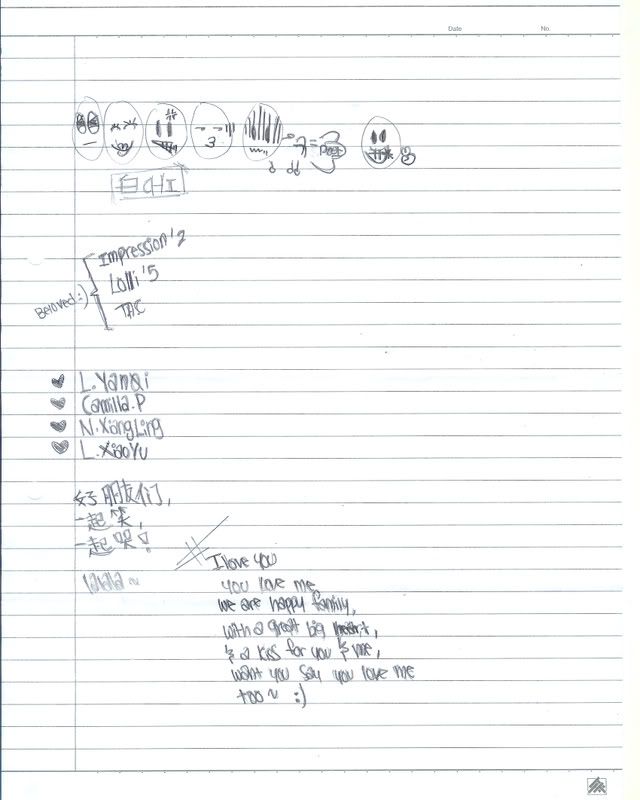 Date No.
Impression '2
Beloved :) Lolli '5
L. YanQi
Camilla.P
N.XiangLing
L.XiaoYu
好朋友们,
一起笑,
一起哭!
lalalla ~
I love you
you love me,
we are happy family,
with a great big heart,
& a kiss for you & me,
want you say you love me
too ~ :)